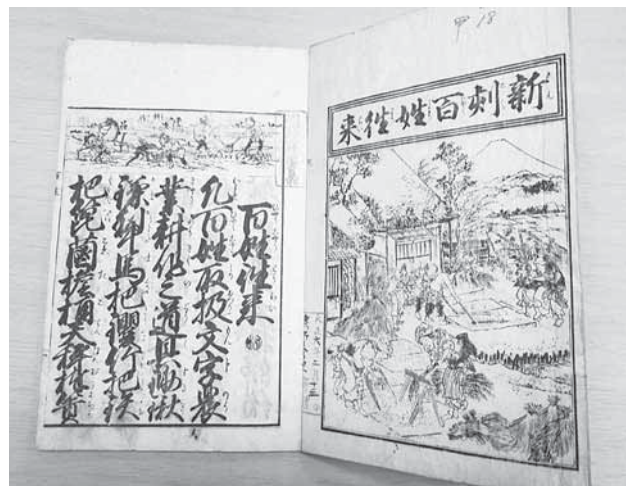 甲 18
新刻百姓往来
百姓往来
凡百姓取扱文字農
業耕作之道具鋤鍬
鎌犂馬把钁竹把鉄
把桶天秤棒簣